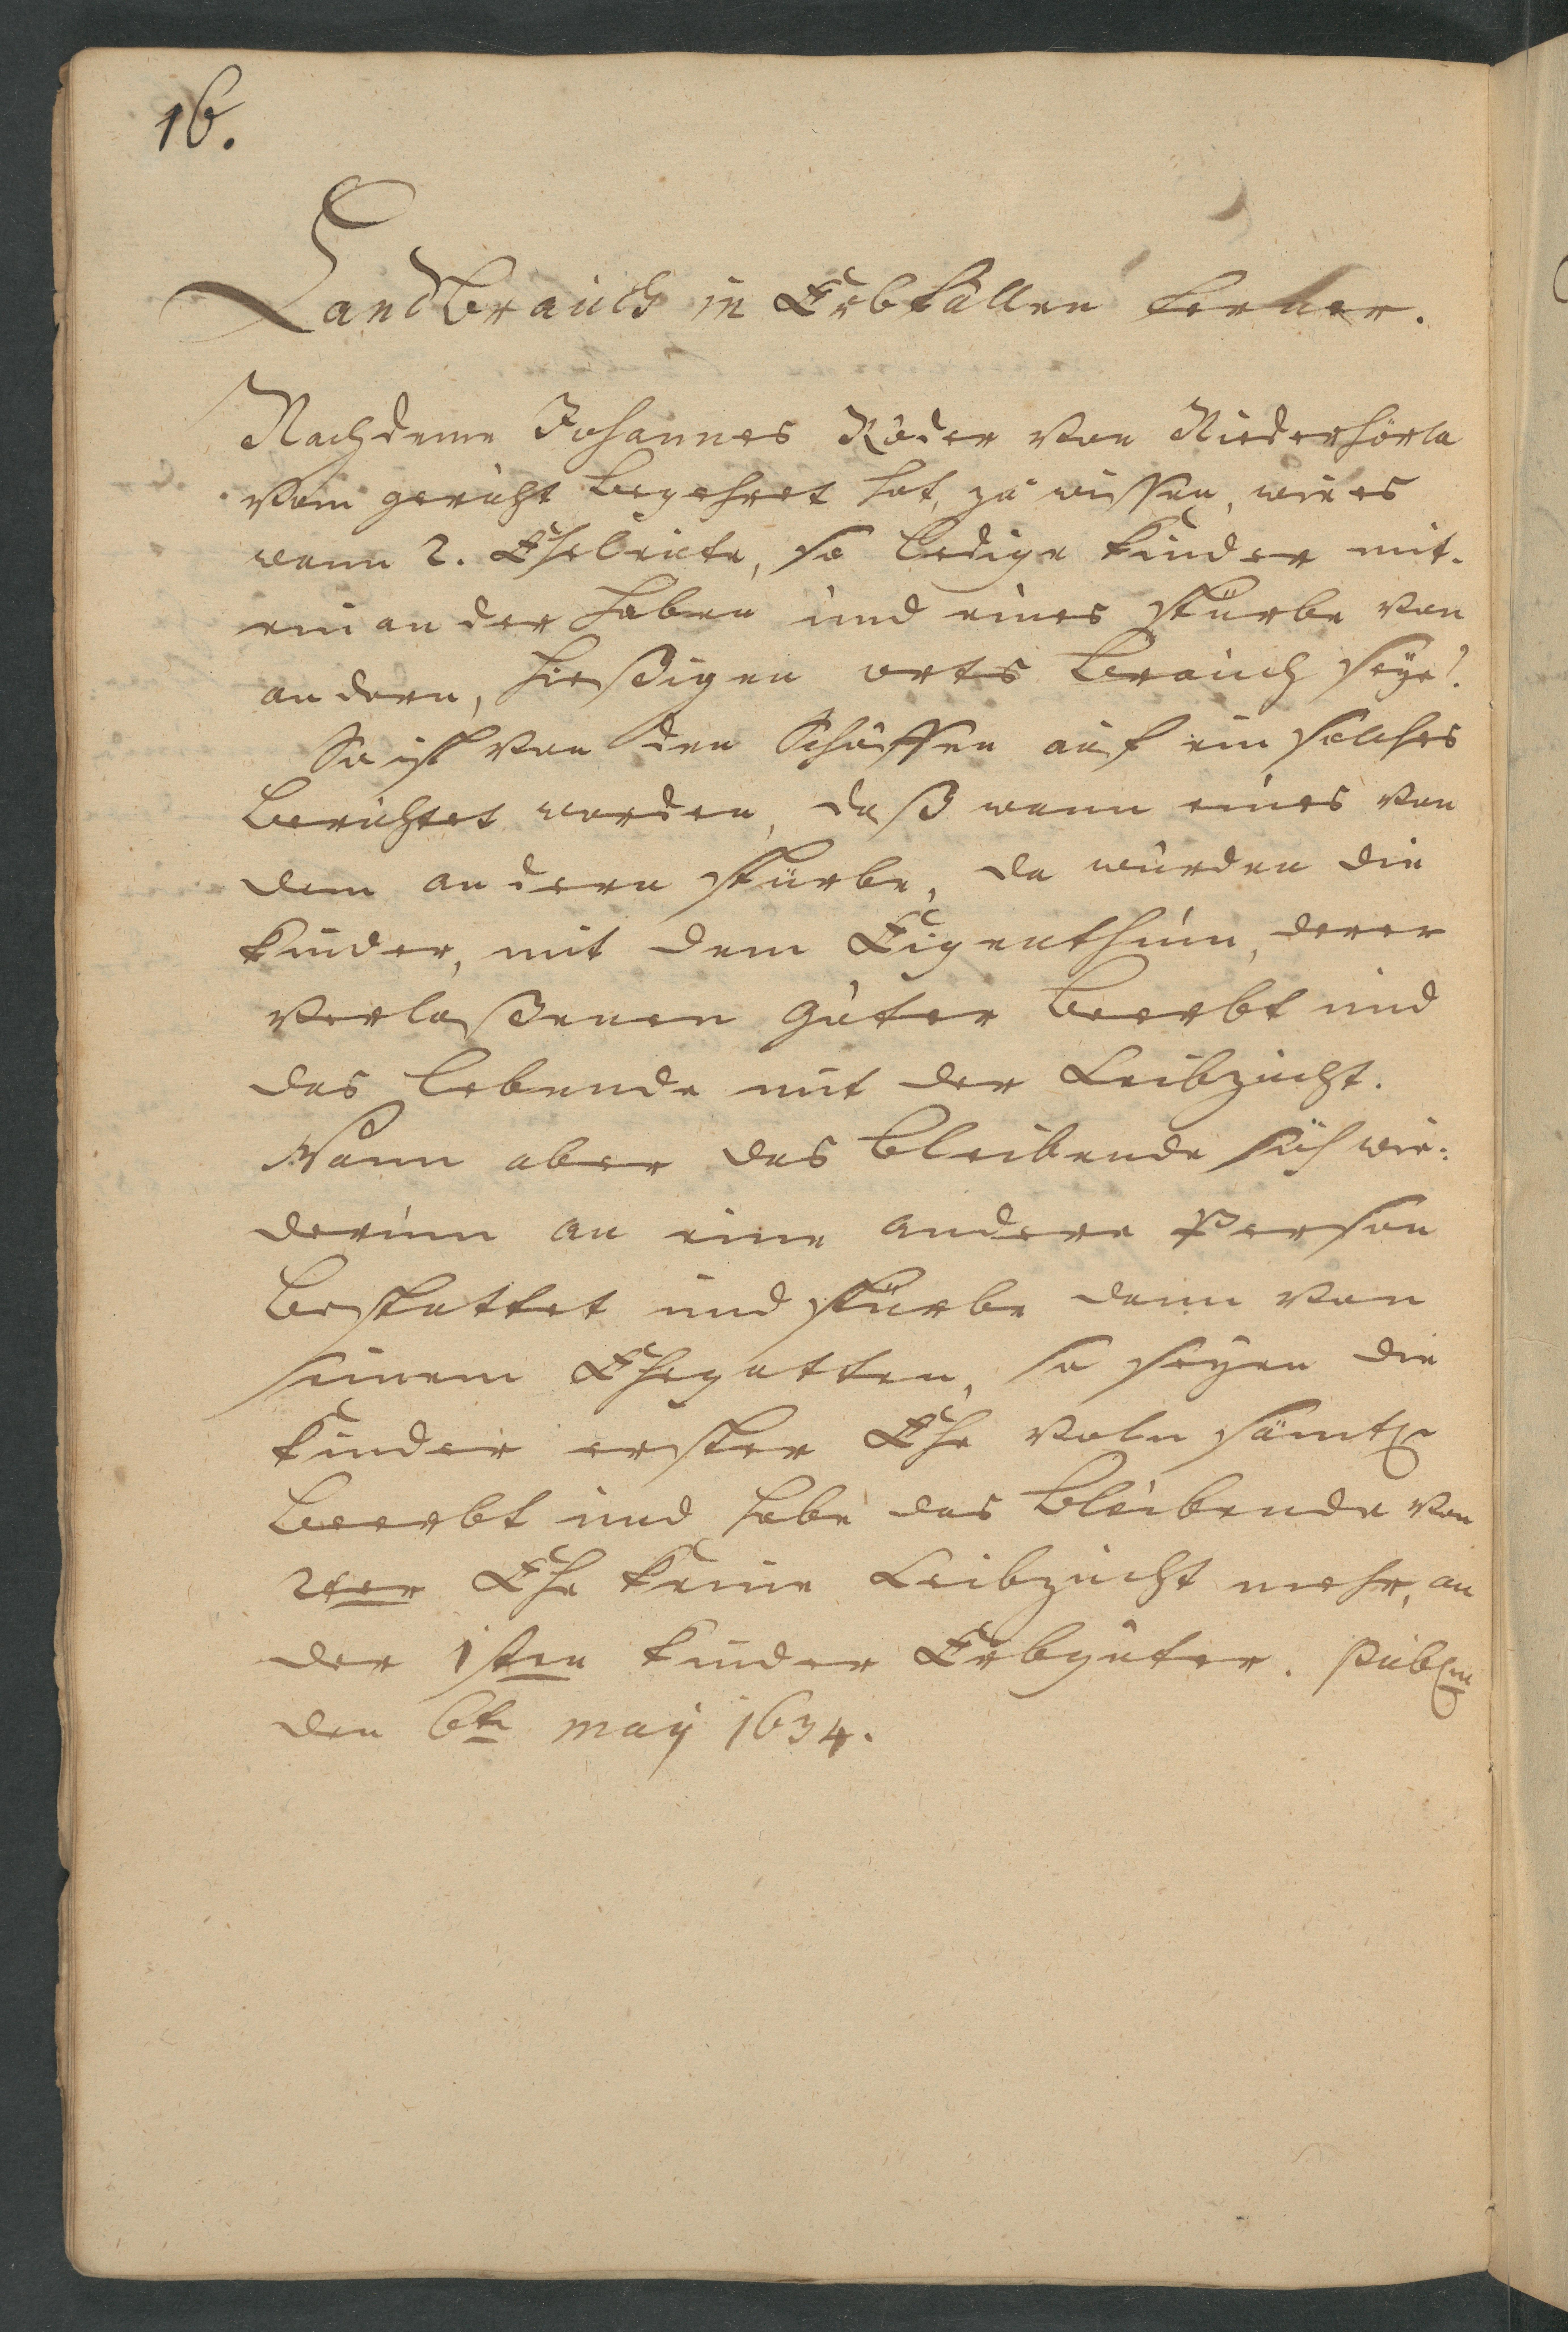 16.
Landbrauch in Erbfällen ferner.
Nachdeme Johannes Röder von Niederhörla
vom gericht begehret hat, zu wissen, wie es
wenn 2. Eheleute, so ledige kinder mit-
einander haben und eines stürbe von
andern, hießigen orts brauch seye?
So ist von den Schöffen auf ein solches
berichtet worden, daß wann eines von
dem andern stürbe, da würden die
kinder, mit dem Eigenthum, derer
verlaßenen güter beerbt und
das lebende mit der Leibzucht.
Wann aber das bleibende sich wie:
derum an eine andere Person
bestattet und stürbe dann von
seinem Ehegatten, so seyen die
kinder erster Ehe voln sämtl.
beerbt und habe das bleibende von
2ter Ehe keine Leibzucht mehr, an
der 1sten kinder Erbgüter. Publ.
den 6tn may 1634.